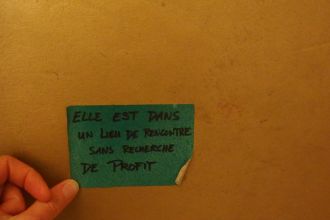 ELLE EST DANS
UN LIEU DE RENCONTRE
SANS RECHERCHE
DE PROFIT